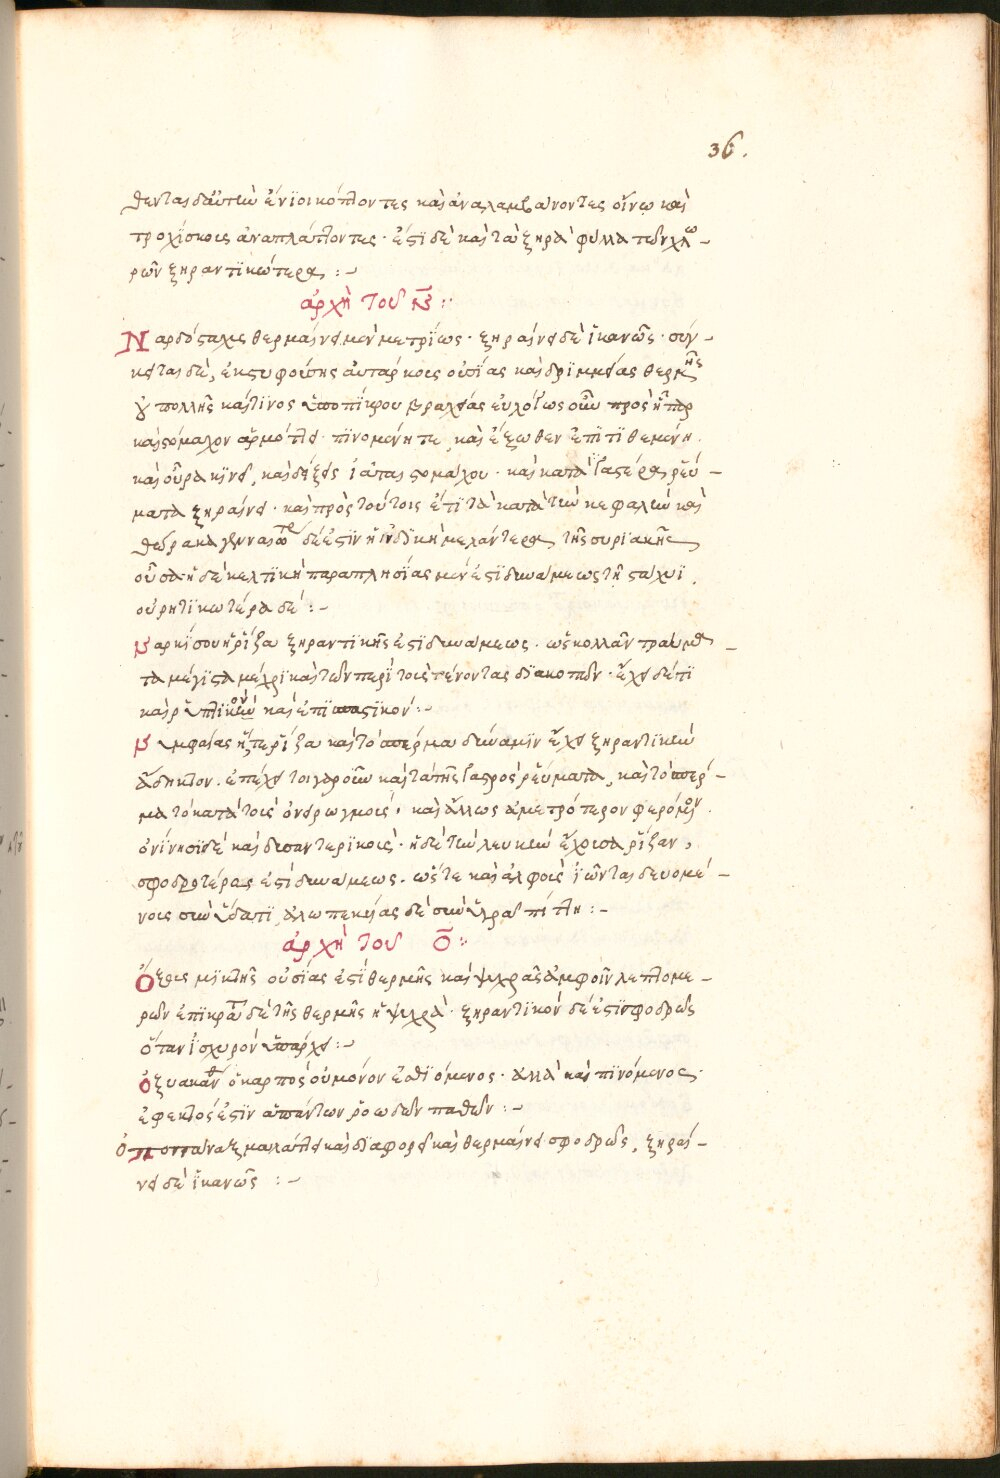 36.
θέντας δ' αὐτὴν ἔνιοι κόπτοντες καὶ ἀναλαμβάνοντες οἴνω καὶ
τροχίσκοις ἀναπλάττοντες· ἐστὶ δὲ καὶ τὰ ξηρὰ φύλλα τῶν χλω-
ρῶν ξηραντικώτερα :-
ἀρχὴ τοῦ ν̄ :
Ναρδόσταχυς θερμαίνει μὲν μετρίως· ξηραίνει δὲ ἱκανῶς· σύγ-
κειται δὲ, ἐκ στυφούσης αὐτάρκοις οὐσίας καὶ δριμείας θερμῆς
οὐ πολλῆς καί τινος ὑποπίκρου βραχείας εὐλόγως οὖν πρὸς ἧπαρ
καὶ στόμαχον ἁρμόττει· πινομένη τε, καὶ ἔξωθεν ἐπιτιθεμένη.
καὶ οὖρα κινεῖ, καὶ δήξεις ἰᾶται στομάχου· καὶ κατὰ γαστέρα ῥεύ-
ματα ξηραίνει· καὶ πρὸς τούτοις ἔτι τὰ κατὰ τὴν κεφαλὴν καὶ
θώρακα γεννᾶται δέ ἐστιν ἡ ἰνδικὴ μελάντερα τῆς συριακῆς
οὖσα· ἡ δὲ κελτικὴ παραπλησίας μέν ἐστι δυνάμεως τῆ στάχυι,
οὐρητικωτέρα δέ :-
Ναρκίσου ἡ ῥίζα ξηραντικῆς ἐστὶ δυνάμεως· ὡς κολλᾶν τραύμα-
τα μέγιστα μέχρι καὶ τῶν περὶ τοὺς τένοντας διακοπῶν· ἔχει δέ τι
καὶ ῥυπτικὸν καὶ ἐπισπαστικόν :-
Νυμφαίας ἥτε ῥίζα καὶ τὸ σπέρμα δύναμιν ἔχει ξηραντικὴν
ἄδηκτον. ἐπέχει τοιγαροῦν καὶ τὰ τῆς γαστρὸς ῥεύματα, καὶ τὸ σπέρ-
μα τὸ κατὰ τοὺς ὀνειρωγμοὺς· καὶ ἄλλως ἀμετρότερον φερόμενον.
ὀνίνησι δὲ καὶ δυσεντερικοὺς· ἡ δὲ τὴν λευκὴν ἔχουσα ῥίζαν,
σφοδροτέρας ἐστὶ δυνάμεως. ὥστε καὶ ἀλφοὺς ἰῶνται δευομέ-
νοις σὺν ὕδατι, ἀλωπεκίας δὲ σὺν ὑγρᾶ πίττη :-
ἀρχὴ τοῦ ο̄ :
Ὄξος μικτῆς οὐσίας ἐστὶ θερμῆς καὶ ψυχρᾶς ἀμφοῖν λεπτομε-
ρῶν ἐπικρατεῖ δὲ τῆς θερμῆς ἡ ψυχρὰ· ξηραντικὸν δέ ἐστι σφοδρῶς
ὅταν ἰσχυρὸν ὑπάρχει :-
Ὀξυακάνθου ὁ καρπὸς οὐ μόνον ἐσθιόμενος· ἀλλὰ καὶ πινόμενος
ἐφεκτός ἐστιν ἁπάντων ῥοωδῶν παθῶν :-
Ὀποπάναξ μαλάττει καὶ διαφορεῖ καὶ θερμαίνει σφοδρῶς, ξηραί-
νει δὲ ἱκανῶς :-